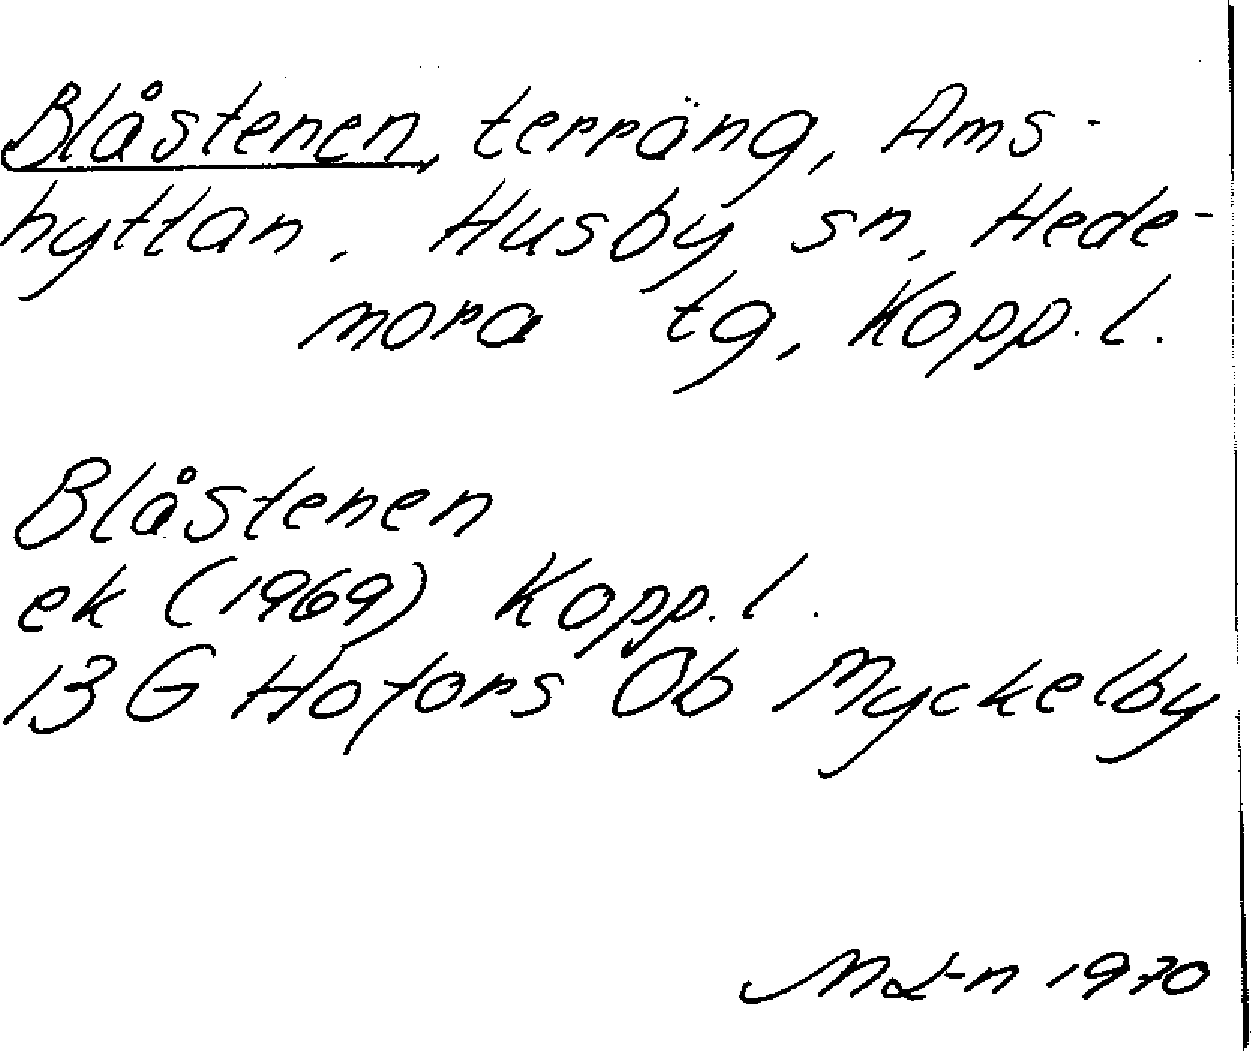 Blåstenen, terräng, Ams-
hyttan, Husby sn, Hede-
mora tg, Kopp. l.
Blåstenen
ek (1969) Kopp. l.
13 G Hofors 0b Myckelby
M L-n 1970